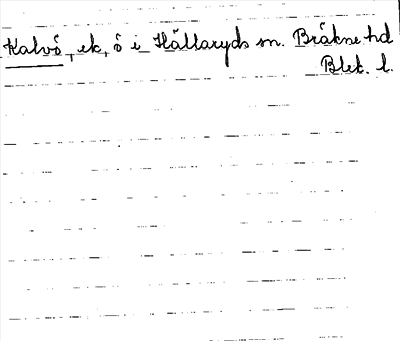 Kalvö, ek, ö i Hällaryds sn. Bräkne hd
Blek. l.